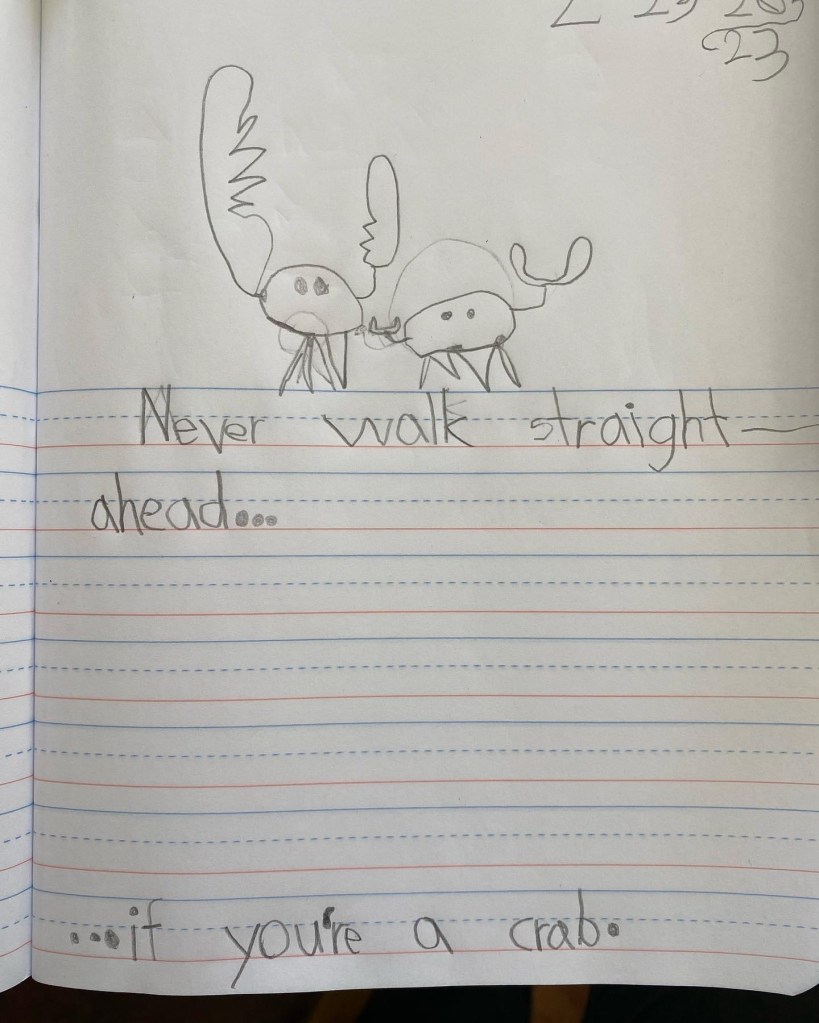 23
Never walk straight—
ahead...
...if you're a crab.